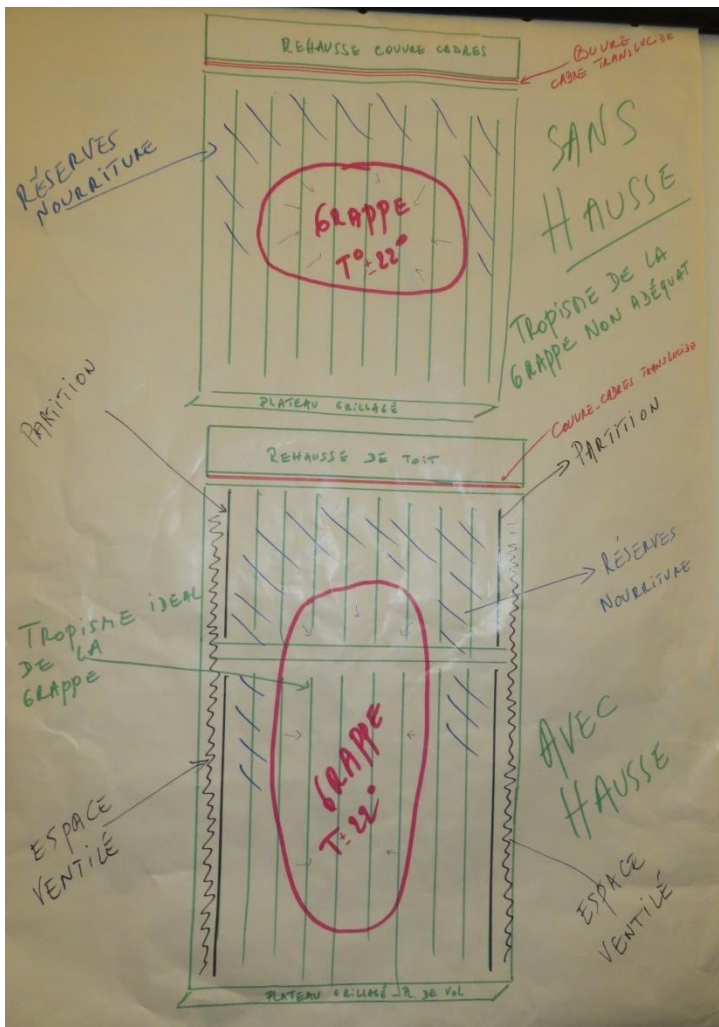 REHAUSSE COUVRE CADRES
COUVRE
CADRE TRANSLUCIDE
RÉSERVES
NOURRITURE
SANS
HAUSSE
GRAPPE
T° ± 22°
TROPISME DE LA
GRAPPE NON ADÉQUAT
PLATEAU GRILLAGÉ
PARTITION
COUVRE-CADRES TRANSLUCIDE
REHAUSSE DE TOIT
PARTITION
RÉSERVES
NOURRITURE
TROPISME IDEAL
DE LA
GRAPPE
GRAPPE
T± 22°
AVEC
HAUSSE
ESPACE
VENTILÉ
ESPACE
VENTILÉ
PLATEAU GRILLAGÉ - PL. DE VOL